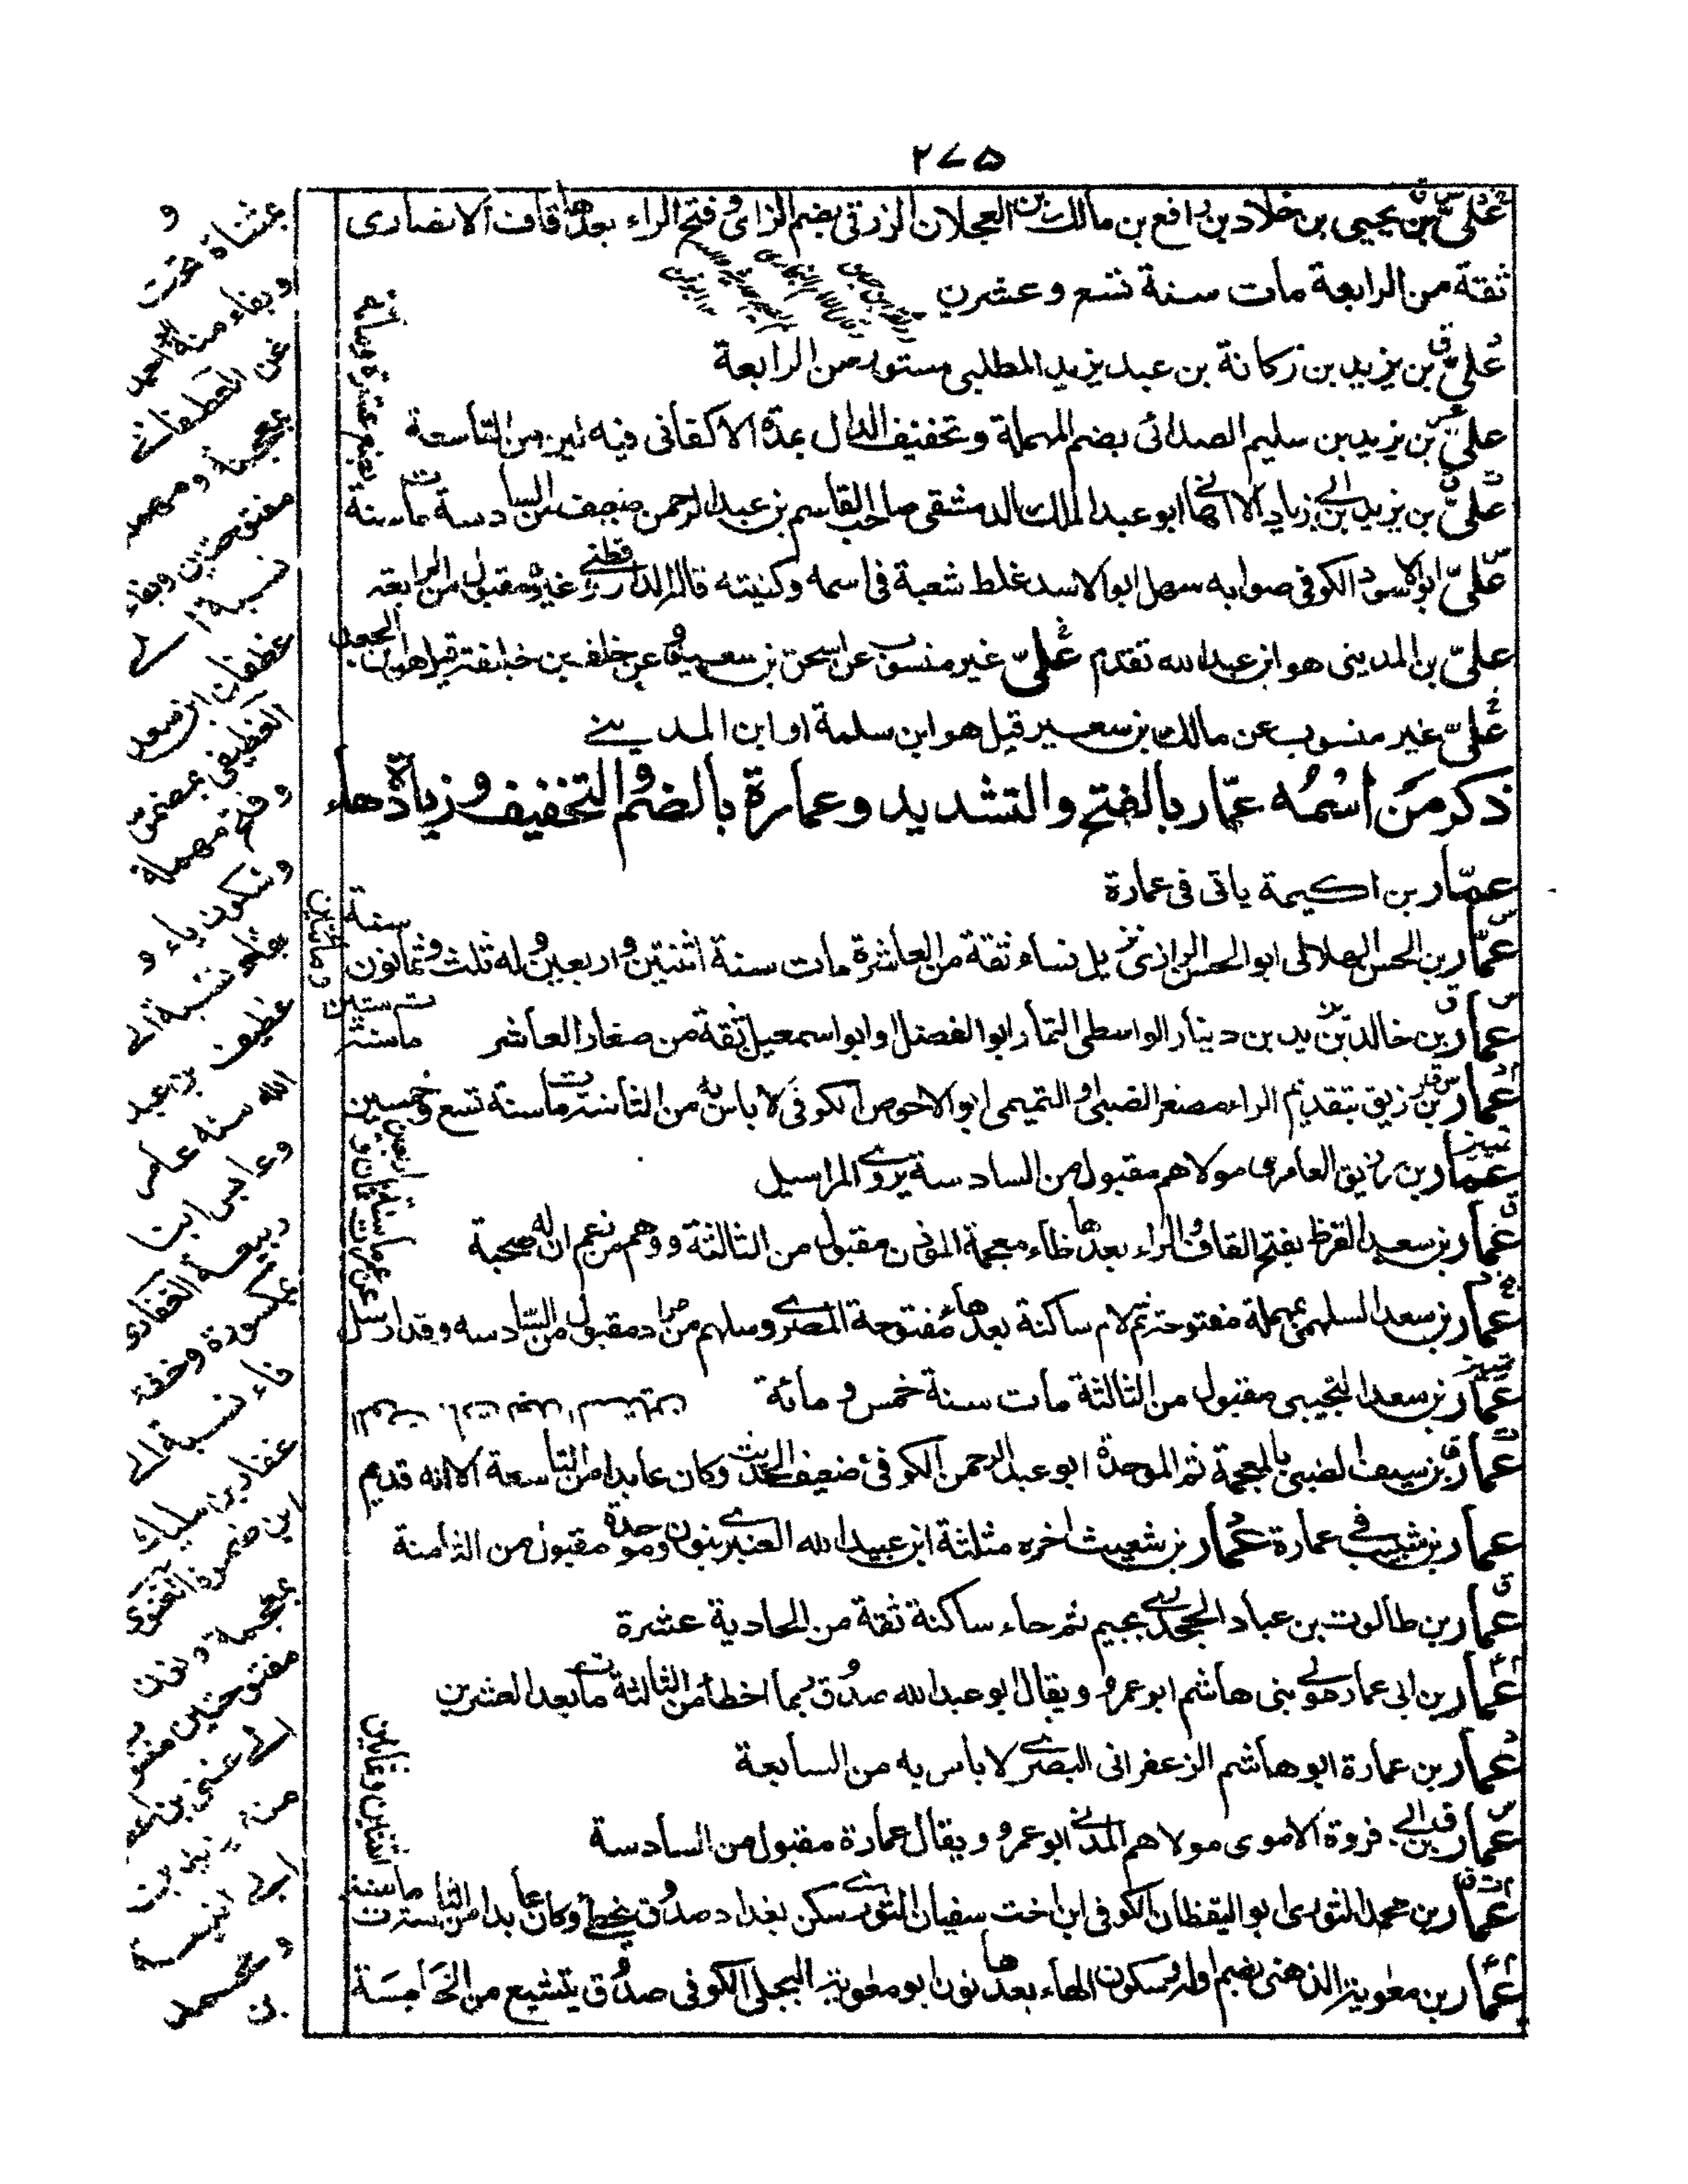 ٢٧٥
علىّ بن يحيى بن خلاد بن رافع بن مالك بن العجلان الزرقى بضم الزاى وفتح الراء بعدها قاف الانصارى
ثقة من الرابعة مات سنة تسع وعشرين
علىّ بن يزيد بن ركانة بن عبد يزيد المطلبى مستور من الرابعة
علىّ بن يزيد بن سليم الصدائى بضم المهملة وتخفيف الدال بمدة الاكفانى فيه لين من التاسعة
علىّ بن يزيد بن ابى زياد الالهانى ابو عبد الملك الدمشقى صاحب القاسم بن عبد الرحمن ضعيف من السادسة مات سنة
بضع عشرة ومائة
علىّ ابو الاسود الكوفى صوابه سهل ابو الاسد غلط شعبة فى اسمه وكنيته قاله الدارقطنى وغيره مقبول من الرابعة
علىّ بن المدينى هو ابن عبد الله تقدم علىّ غير منسوب عن اسحق بن سعيد وعن خلف بن خليفة قيل هو ابن الجعد
علىّ غير منسوب عن مالك بن سعير قيل هو ابن سلمة او ابن المدينى
ذكر من اسمه عمّار بالفتح والتشديد وعمارة بالضم والتخفيف وزيادة هاء
عمّار بن اكيمة ياتى فى عمارة
عمّار بن الحسن الهلالى ابو الحسن الرازى نزيل نساء ثقة من العاشرة مات سنة اثنتين واربعين وله ثلث وثمانون سنة
عمّار بن خالد بن يزيد بن دينار الواسطى التمار ابو الفضل وابو اسمعيل ثقة من صغار العاشر مات سنة ستين ومائتين
عمّار بن رزيق بتقديم الراء مصغر الضبى والتميمى ابو الاحوص الكوفى لا باس به من الثامنة مات سنة تسع وخمسين
عمّار بن رزيق العامرى مولاهم مقبول من السادسة يروى المراسيل
عمّار بن سعد القرظ بفتح القاف والراء بعدها ظاء معجمة الموذن مقبول من الثالثة ووهم من زعم ان له صحبة
عمّار بن سعد السلهمى بمهملة مفتوحة ثم لام ساكنة بعدها مفتوحة المصرى وسلهم من مراد مقبول من السادسه وقد ارسل
عمّار بن سعد التجيبى مقبول من الثالثة مات سنة خمس ومائة
عمّار بن سيف الضبى بالمعجمة ثم الموحدة ابو عبد الرحمن الكوفى ضعيف الحديث وكان عابدا من التاسعة الا انه قديم
عمار بن شبيب فى عمارة عمار بن شعيث اخره مثلثة ابن عبيد الله العنبرى بنون وموحدة مقبول من الثامنة
عمّار بن طالوت بن عباد الجحدرى بجيم ثم حاء ساكنة ثقة من الحادية عشرة
عمّار بن ابى عمار مولى بنى هاشم ابو عمرو ويقال ابو عبد الله صدوق ربما اخطأ من الثالثة مات بعد العشرين
عمّار بن عمارة ابو هاشم الزعفرانى البصرى لا باس به من السابعة
عمّار بن ابى فروة الاموى مولاهم المدنى ابو عمرو ويقال عمارة مقبول من السادسة
عمّار بن محمد الثورى ابو اليقظان الكوفى ابن اخت سفيان الثورى سكن بغداد صدوق يخطئ وكان عابدا من الثامنة مات سنة
اثنتين وثمانين
عمّار بن معوية الدهنى بضم اوله وسكون الهاء بعدها نون ابو معوية البجلى الكوفى صدوق يتشيع من الخامسة
بمثناة تحت و
وبفاء منه
مفتوحتين وبفاء
نسبة الى
غطفان ابن سعد
الغطيفى بمضمومة
وفتح مهملة
وسكون ياء و
بفاء نسبة الى
غطيف بن عبد
الله
ربيعة الغفارى
بمكسورة وخفة
فاء نسبة الى
غفار بن مليك
ابن ضمرة الغنوى
بمعجمة ونون
مفتوحتين
الى غنى بن
منه
ابى انيسة
ومحمد
بن